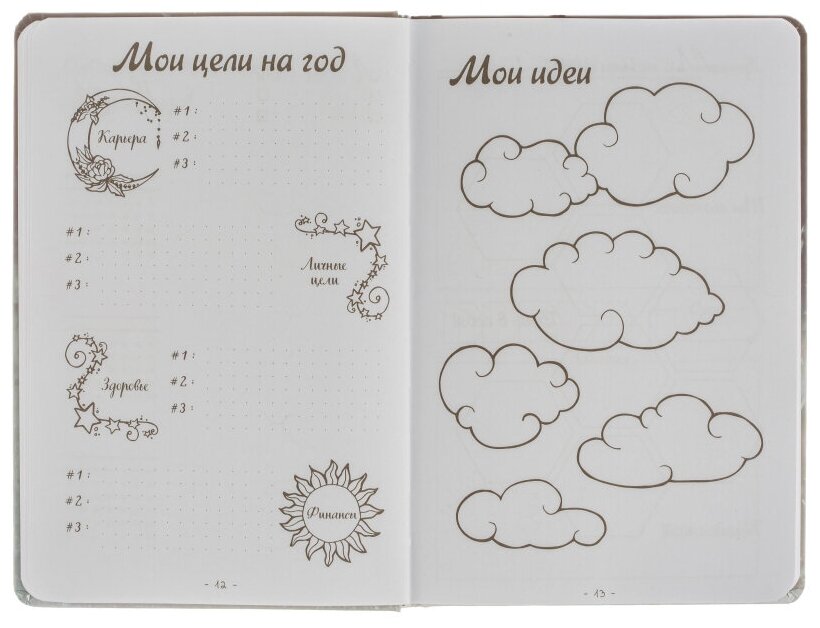 Мои цели на год
Карьера
#1:
#2:
#3:
#1:
#2:
#3:
Личные
цели
Здоровье
#1:
#2:
#3:
#1:
#2:
#3:
Финансы
- 12 -
Мои идеи
- 13 -